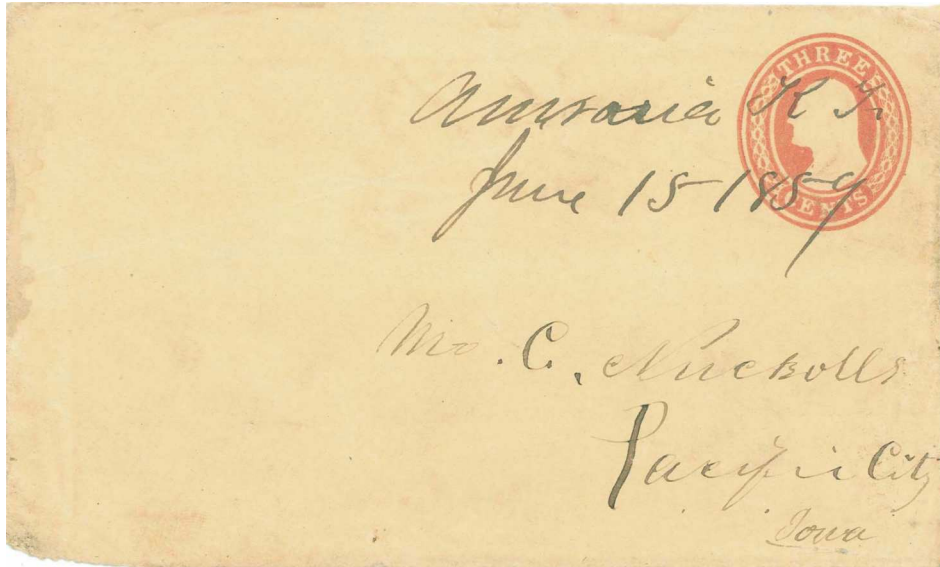 THREE
Auraria K.T.
June 15 1859
CENTS
Mr. C. Nuckolls
Pacific City
Iowa